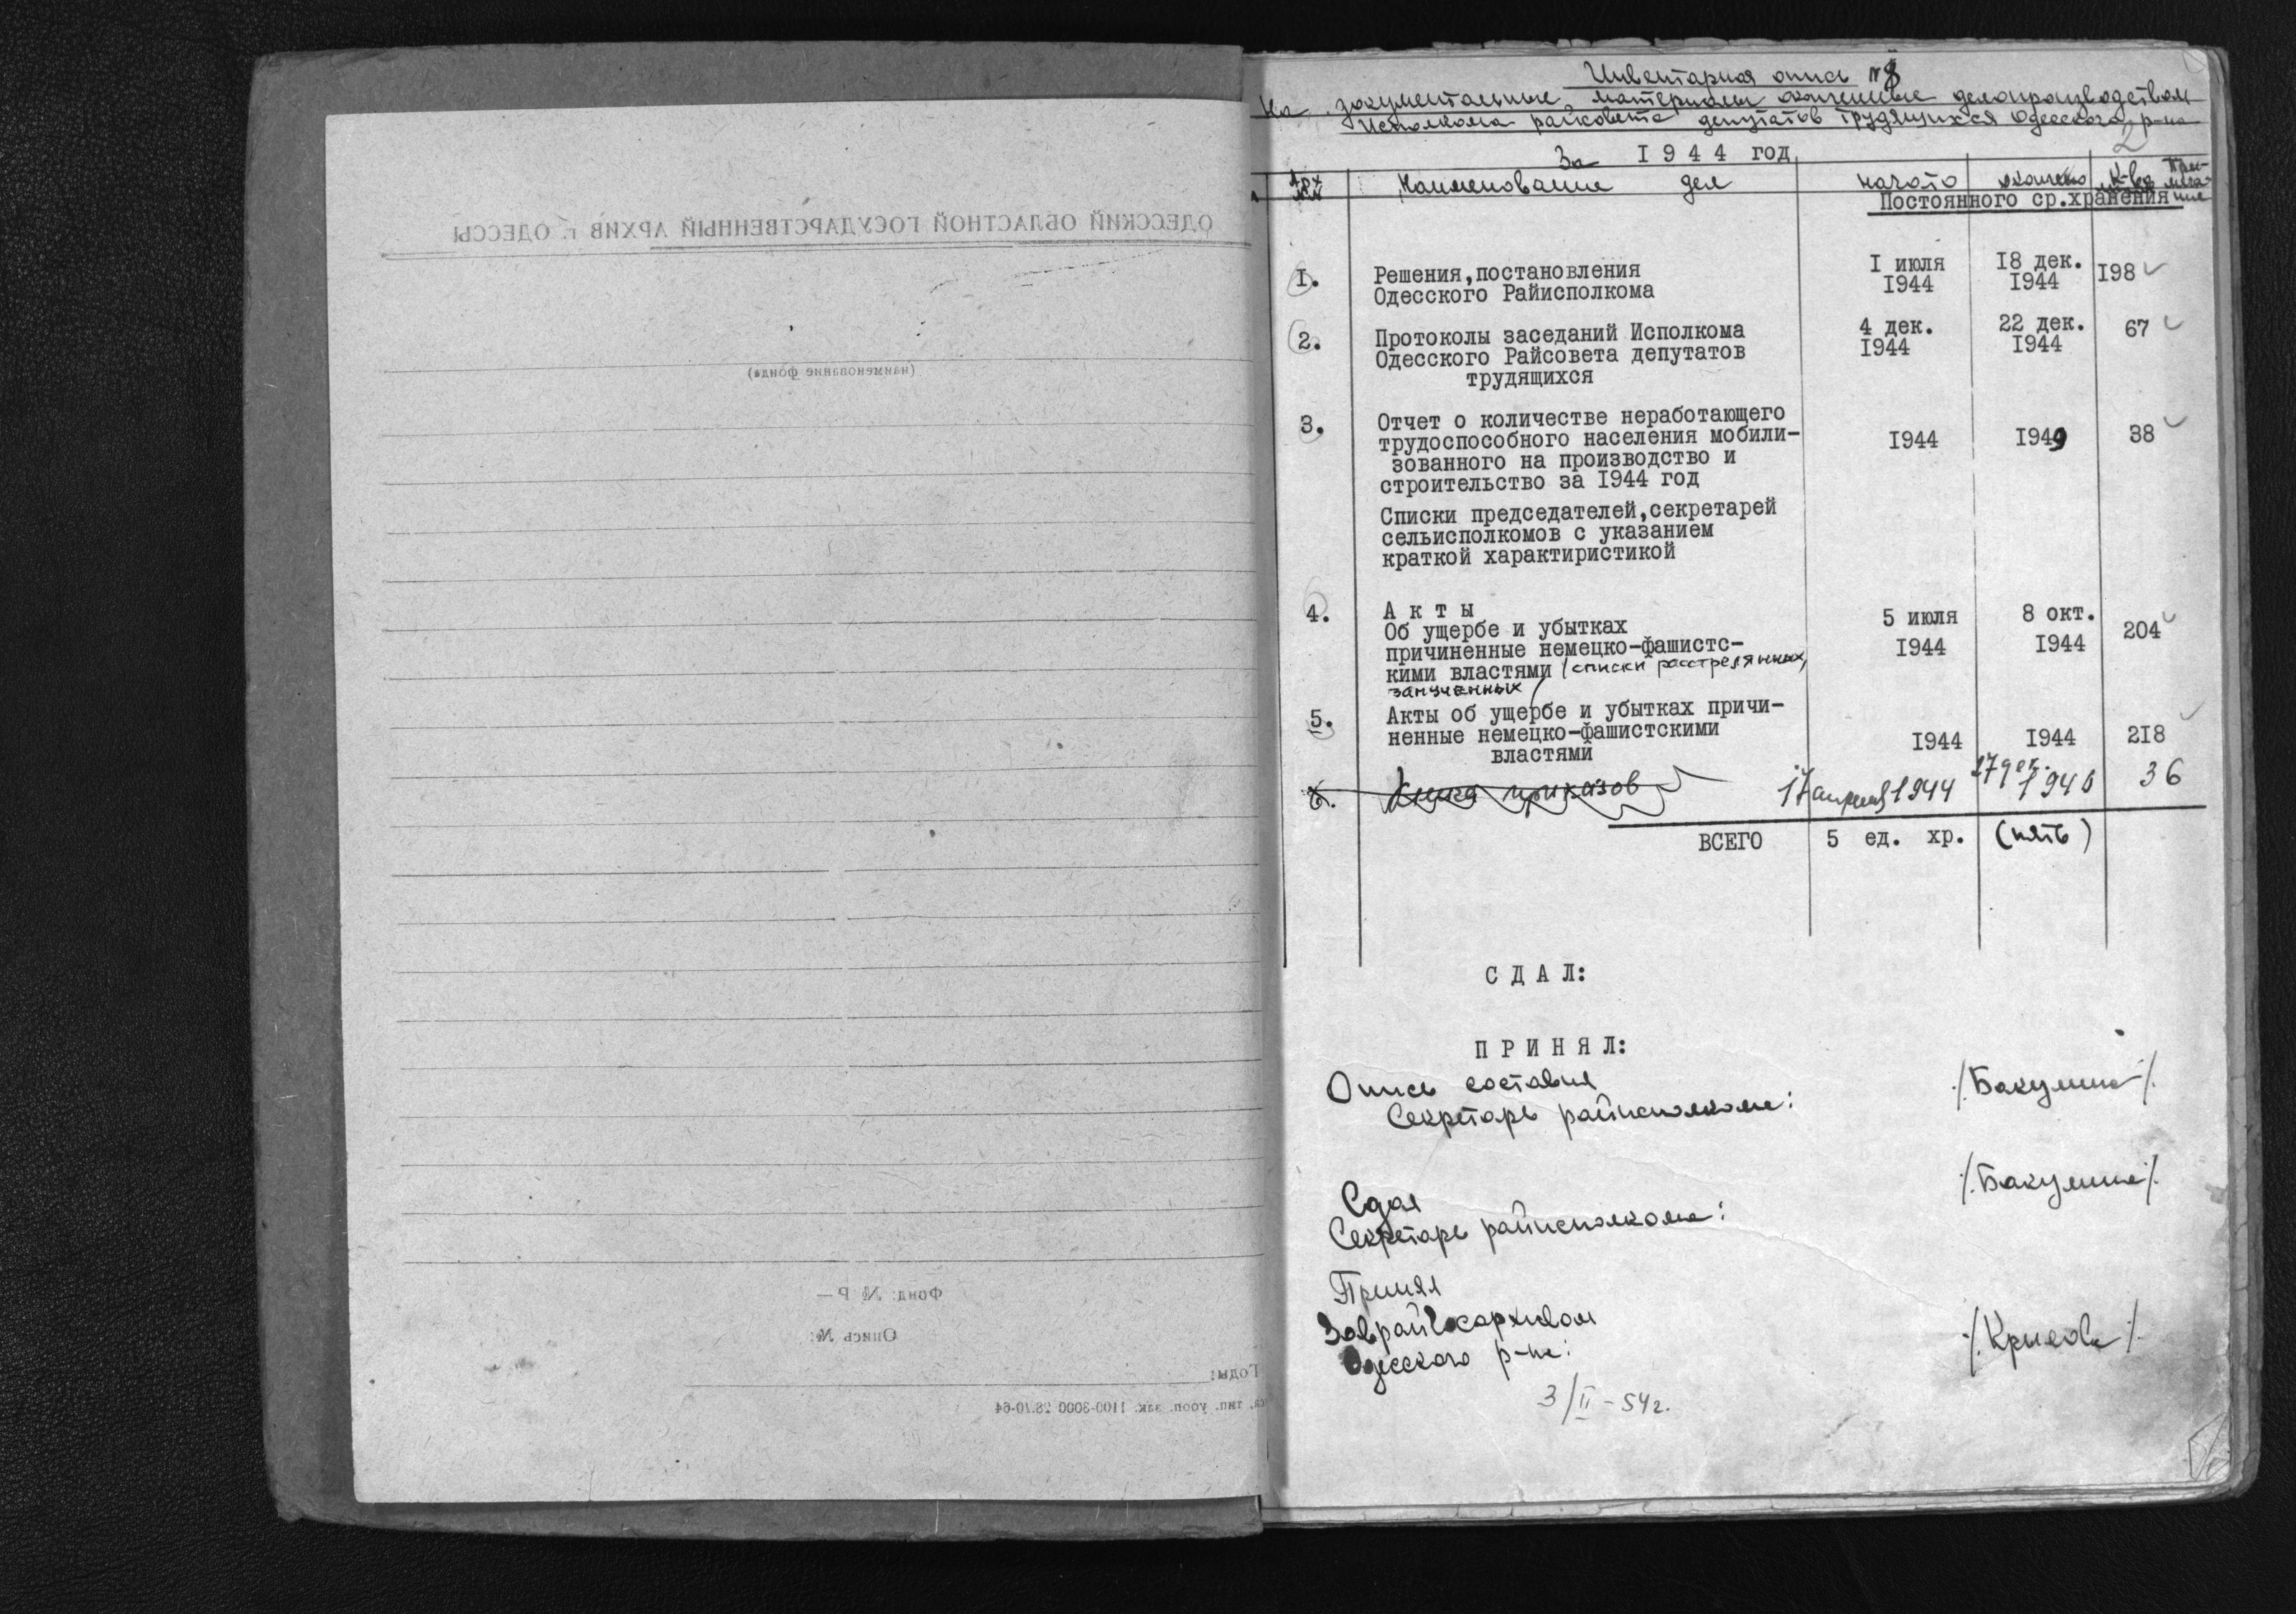 ОДЕССКИЙ ОБЛАСТНОЙ ГОСУДАРСТВЕННЫЙ АРХИВ г. ОДЕССЫ
(наименование фонда)
Фонд № Р —
Опись №:
Годы:
тип. уооп. зак. 1100-3000
Инвентарная опись №8
На документальные материалы оконченные делопроизводством
Исполкома райсовета депутатов трудящихся Одесского р-на
2
За 1944 год
Арх №№ Наименование дел начато окончено К-во Приме-чание
Постоянного ср.хранения
1. Решения,постановления I июля 18 дек. 198
Одесского Райисполкома 1944 1944
2. Протоколы заседаний Исполкома 4 дек. 22 дек. 67
Одесского Райсовета депутатов 1944 1944
трудящихся
3. Отчет о количестве неработающего
трудоспособного населения мобили- 1944 1949 38
зованного на производство и
строительство за 1944 год
Списки председателей,секретарей
сельисполкомов с указанием
краткой характиристикой
4. А к т ы 5 июля 8 окт. 204
Об ущербе и убытках
причиненные немецко-фашистс- 1944 1944
кими властями /списки расстрелянных,
замученных/
5. Акты об ущербе и убытках причи-
ненные немецко-фашистскими 1944 1944 218
властями
6. Книга приказов 17 апреля 1944 36
ВСЕГО 5 ед. хр. (пять)
С Д А Л:
П Р И Н Я Л:
Опись составил
Секретарь райисполкома: /Бакулина/
Сдал
Секретарь райисполкома: /Бакулина/
Принял
Заврайгосархивом
Одесского р-на: /Крылова/
3/II-54г.